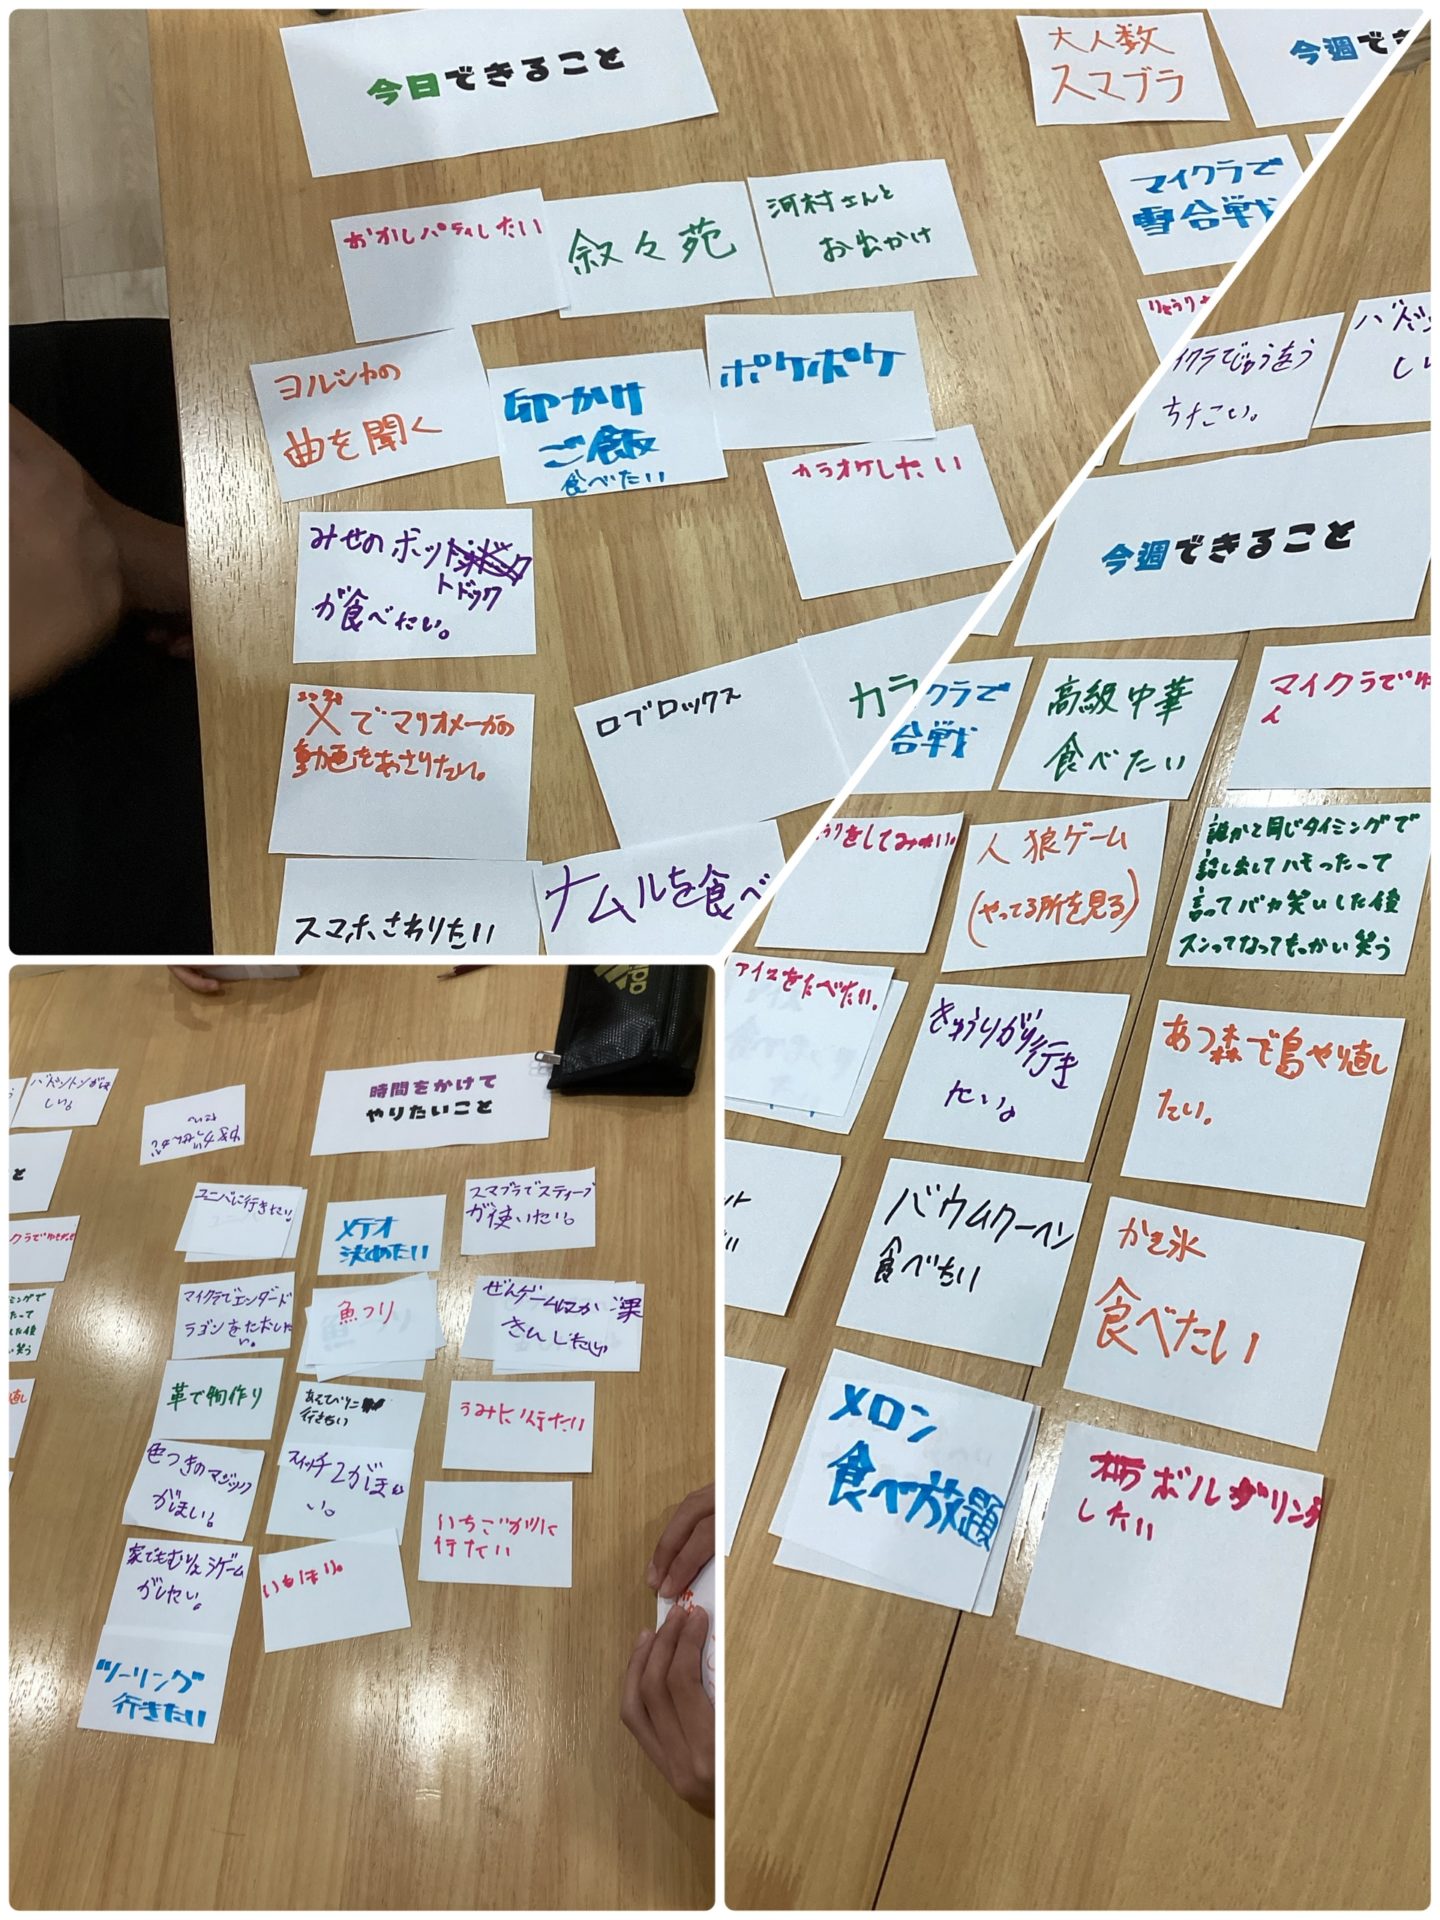 今日できること
おかしパティしたい
叙々苑
河村さんと
お出かけ
ヨルシカの
曲を聞く
卵かけ
ご飯
食べたい
ポケポケ
カラオケしたい
みせのホット
トドック
が食べたい。
でマリオメーカの
動画をあさりたい。
ロブロックス
カラ
スマホさわりたい
ナムルを食べ
大人数
スマブラ
今週でき
マイクラで
雪合戦
イクラでじゅうをう
ちたこい。
今週できること
クラで
合戦
高級中華
食べたい
マイクラで
をしてみたい。
人狼ゲーム
(やってる所を見る)
誰かと同じタイミングで
話し出してハモったって
言ってバカ笑いした後
スンってなってもっかい笑う
アイスをたべたい。
きゅうりがり行き
たい。
あつ森で島やり直し
たい。
バウムクーヘン
食べたい
かき氷
食べたい
メロン
食べ放題
ボルダリング
したい
時間をかけて
やりたいこと
バドミントンがし
しい。
ユニバに行きたい。
メテオ
決めたい
スマブラでスティーブ
が使いたい。
マイクラでエンダード
ラゴンをたおした
い。
魚つり
革で物作り
行きたい
うみに行たい
色つきのマジック
がほしい。
スイッチ2がほし
い。
いちごがりに
行たい
家でもむりょうゲーム
がしたい。
いもほり。
ツーリング
行きたい